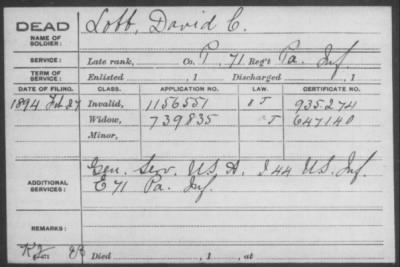 DEAD Lobb, David C.
NAME OF SOLDIER:
SERVICE: Late rank, Co. P, 71 Reg't Pa. Inf.
TERM OF SERVICE: Enlisted , 1 Discharged , 1
DATE OF FILING. CLASS. APPLICATION NO. LAW. CERTIFICATE NO.
1894 27 Invalid, 1156551 J 935274
Widow, 739835 J 647140
Minor,
ADDITIONAL SERVICES: Gen. Serv. U.S.A. I 44 U.S. Inf.
E 71 Pa. Inf.
REMARKS:
Died , 1 , at